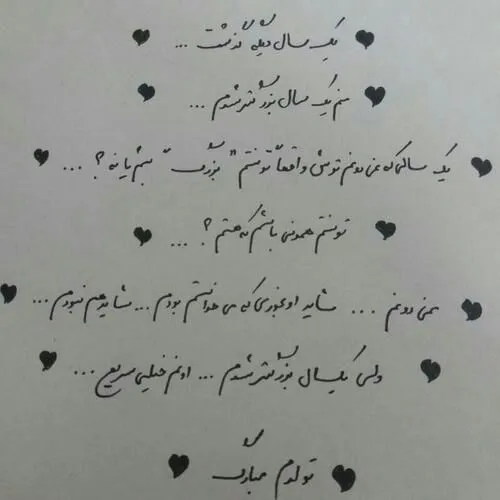 یک سال دیگه گذشت ...
من یک سال بزرگتر شدم ...
یک سالی که نمی دونم توش واقعاً تونستم "بزرگ" بشم یا نه؟ ...
تونستم همونی باشم که هستم؟ ...
نمی دونم ... شاید اونجوری که می خواستم بودم ... شایدهم نبودم ...
ولی یکسال بزرگتر شدم ... اونم خیلی سریع ...
تولدم مبارک